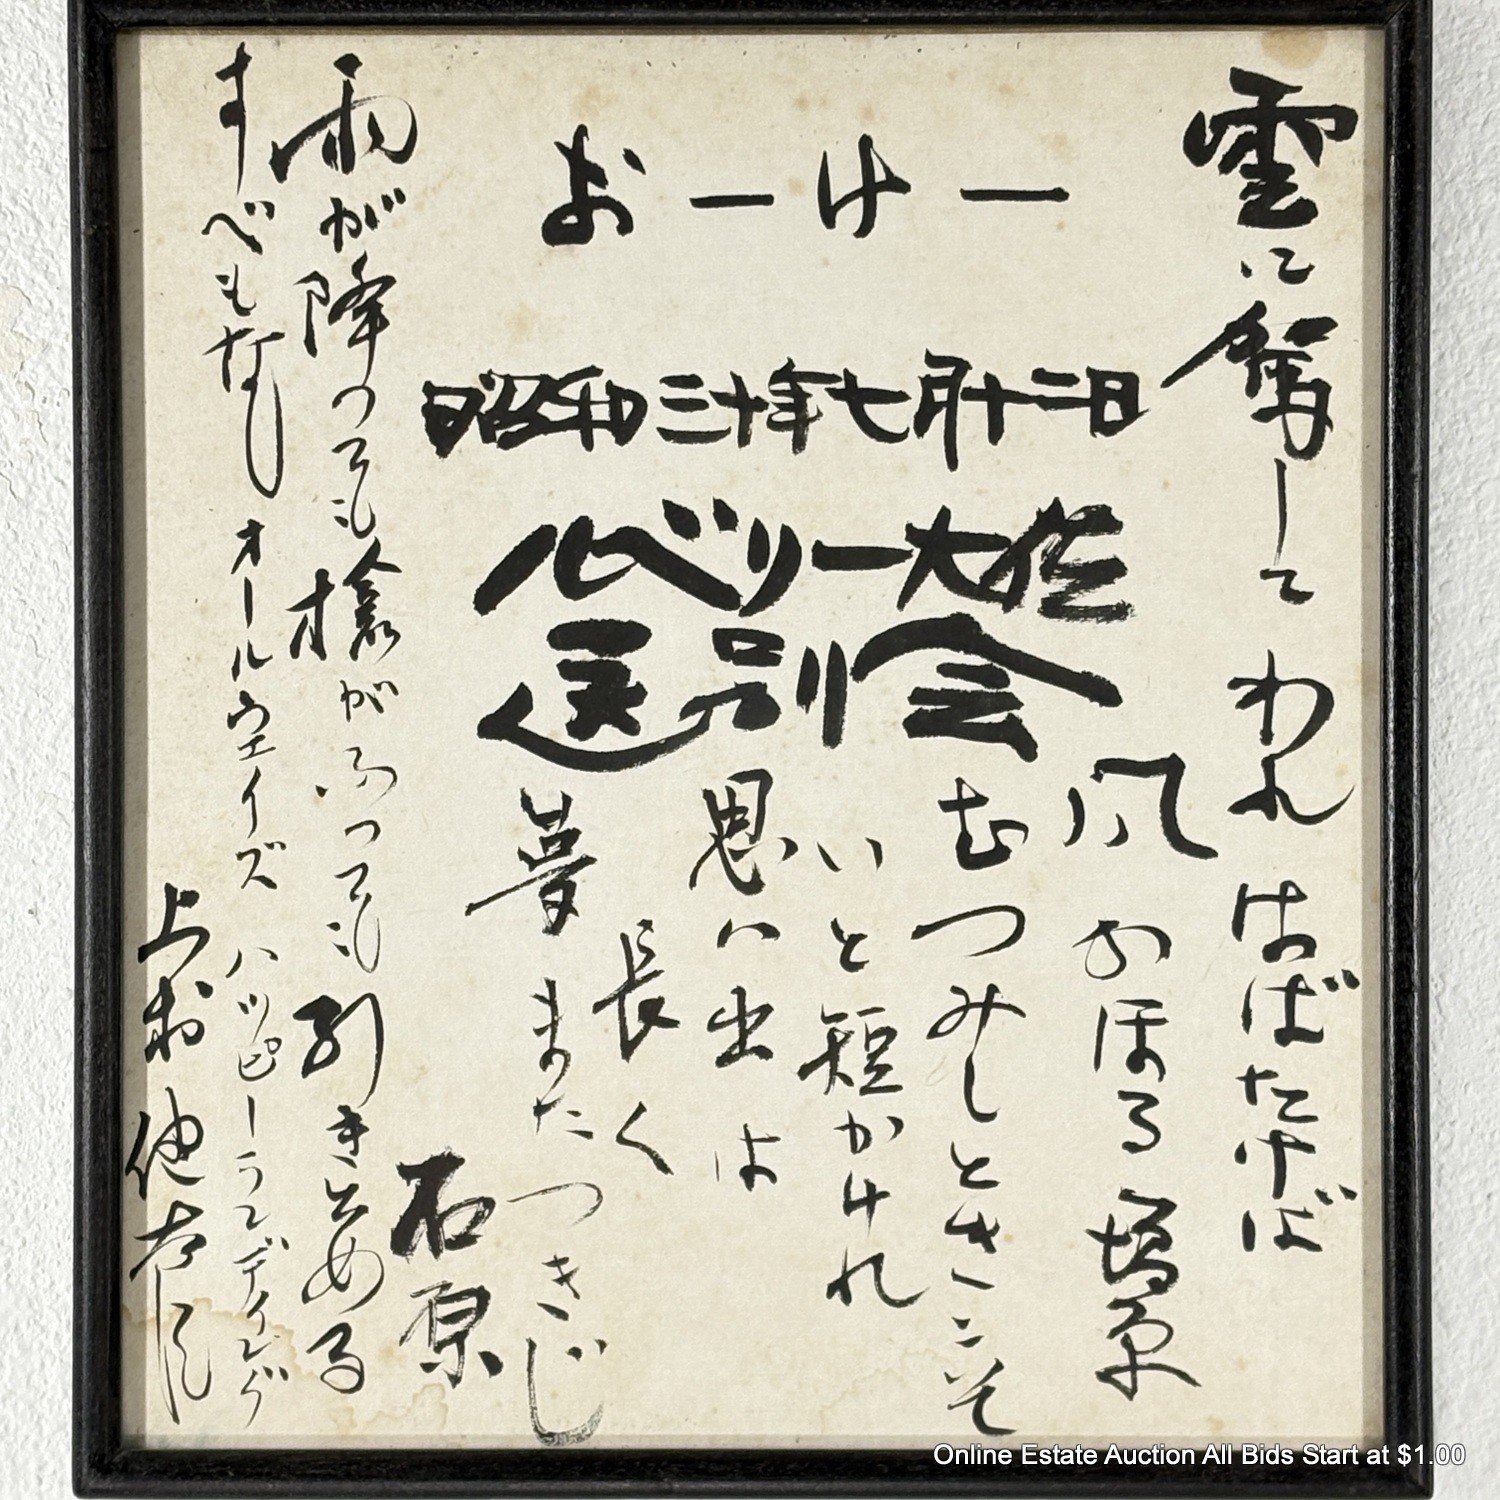 おーけー
昭和三十年七月十二日
ルベリー大佐
送別会
雲に駕して われ はばたけば
風 かほる 塙
むつみしときこそ
いと短かけれ
思ハ出は
長く
夢 またつきじ
石原
雨が降つても 槍がふつても 引き
すべもなし オールウエイズ ハッピーランディング
上村
Online Estate Auction All Bids Start at $1.00